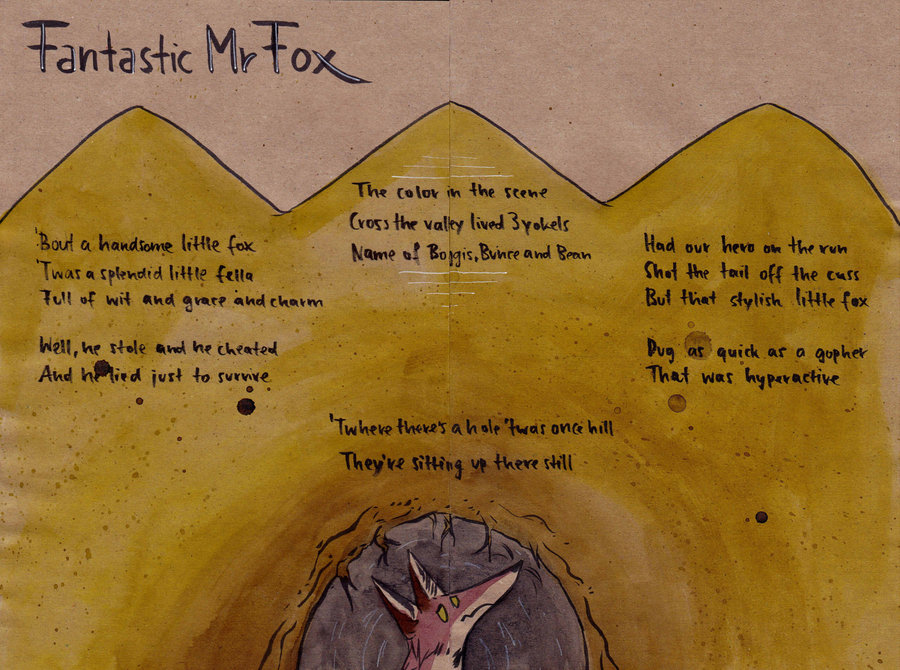 Fantastic Mr Fox
'Bout a handsome little fox
'Twas a splendid little fella
Full of wit and grace and charm
Well, he stole and he cheated
And he lied just to survive
The color in the scene
Cross the valley lived 3 yokels
Name of Boggis, Bunce and Bean
Had our hero on the run
Shot the tail off the cuss
But that stylish little fox
Dug as quick as a gopher
That was hyperactive
'Twhere there's a hole 'twas once hill
They're sitting up there still